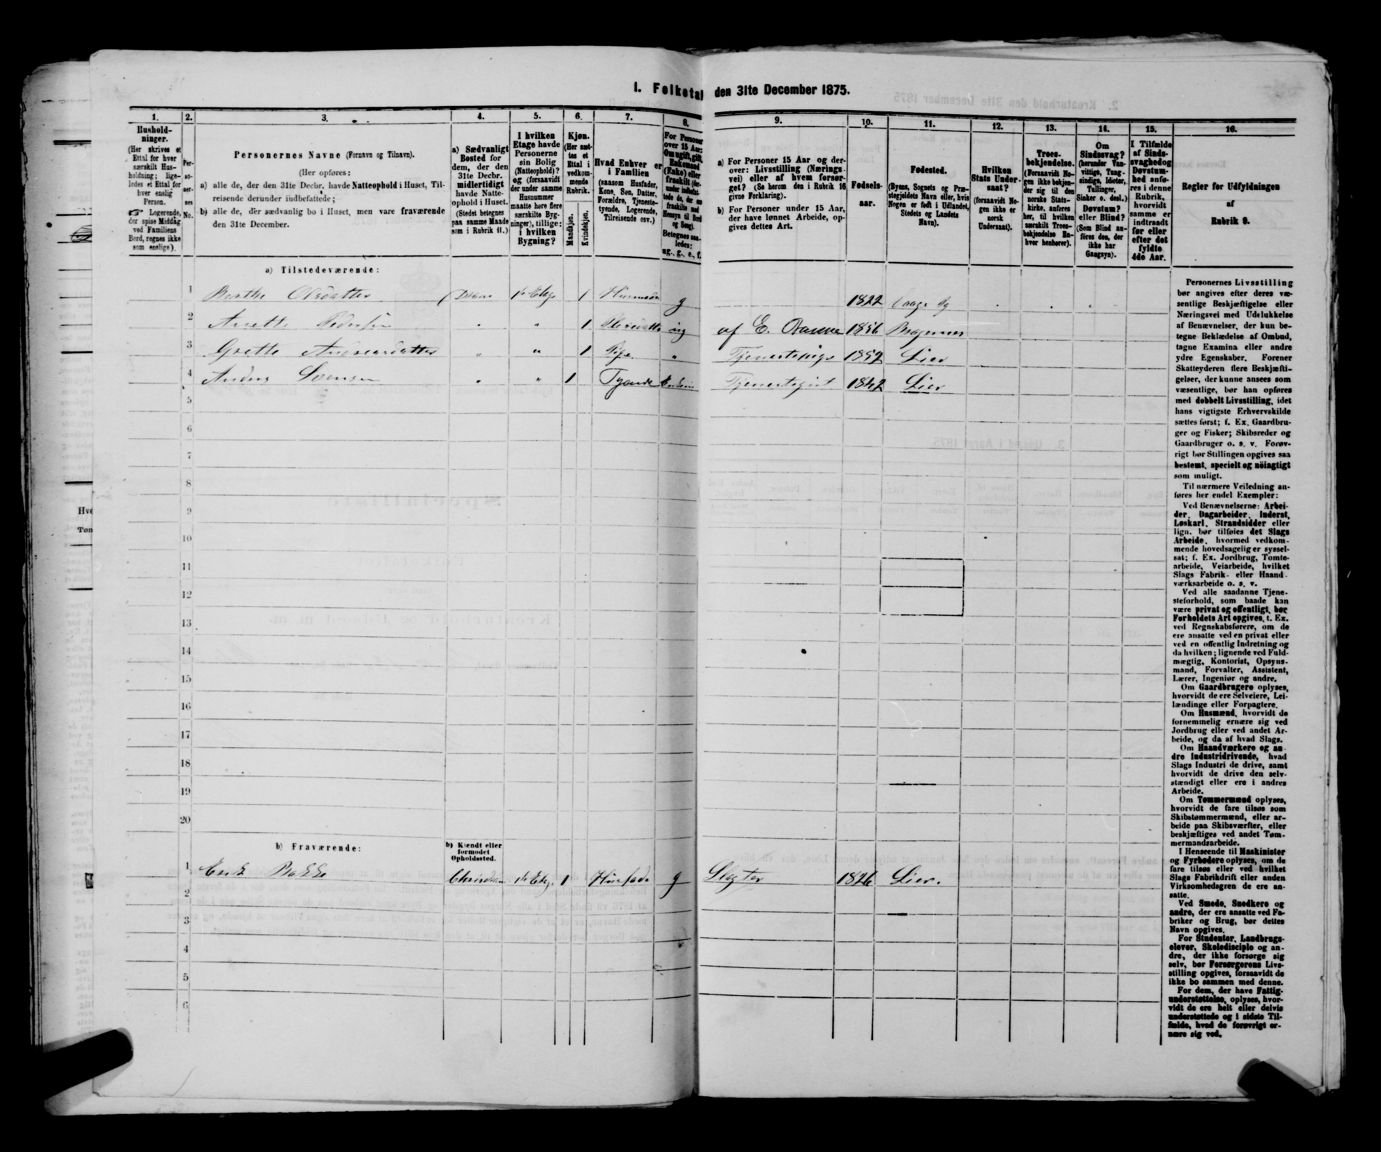 1. Folketal den 31te December 1875.
1. 2. 3. 4. 5. 6. 7. 8. 9. 10. 11. 12. 13. 14. 15. 16.
Hushold-
ninger.
(Her skrives et
Ettal for hver
særskilt Hus-
holdning; lige-
ledes et Ettal for
hver enslig
Person.
☞ Logerende,
der spise Middag
ved Familiens
Bord, regnes ikke
som enslige).
Per-
so-
ner-
nes
No.
Personernes Navne (Fornavn og Tilnavn).
(Her opføres:
a) alle de, der den 31te Decbr. havde Natteophold i Huset, Til-
reisende derunder indbefattede;
b) alle de, der sædvanlig bo i Huset, men vare fraværende
den 31te December.
a) Sædvanligt
Bosted for
dem, der den
31te Decbr.
midlertidigt
havde Natte-
ophold i Huset.
(Stedet betegnes
paa samme Maade
som i Rubrik 11.)
I hvilken
Etage havde
Personerne
sin Bolig
(Natteophold)?
og (forsaavidt
der under samme
Husnummer
maatte høre flere
særskilte Byg-
ninger), tillige:
i hvilken
Bygning?
Kjøn.
(Her sæt-
tes et
Ettal i
vedkom-
mende
Rubrik.)
Mandkjøn.
Kvindekjøn.
Hvad Enhver er
i Familien
(saasom Husfader,
Kone, Søn, Datter,
Forældre, Tjeneste-
tyende, Logerende,
Tilreisende osv.)
For Personer
over 15 Aar:
Om ugift, gift,
Enkemand
(Enke) eller
fraskilt
Betegnes saa-
ledes:
ug., g., e., f.
a) For Personer 15 Aar og der-
over: Livsstilling (Nærings-
vei) eller af hvem forsør-
get? (Se herom den i Rubrik 16
givne Forklaring).
b) For Personer under 15 Aar,
der have lønnet Arbeide, op-
gives dettes Art.
Fødsels-
aar.
Fødested.
(Byens, Sognets og Præ-
stegjældets Navn eller, hvis
Nogen er født i Udlandet,
Stedets og Landets
Navn).
Hvilken
Stats Under-
saat?
(forsaavidt No-
gen ikke er
norsk
Undersaat).
Troes-
bekjendelse.
(Forsaavidt No-
gen ikke bekjen-
der sig til den
norske Stats-
kirke, anføres
her, til hvilken
særskilt Troes-
bekjendelse En-
hver henhører).
Om
Sindssvag?
(herunder Van-
vittige, Tung-
sindige, Idioter,
Tullinger,
Sinker o. desl.)
Døvstum?
eller Blind?
(Som Blind an-
føres den, der
ikke har
Gangsyn).
I Tilfælde
af Sinds-
svaghed og
Døvstum-
hed anfø-
res i denne
Rubrik,
hvorvidt
samme er
indtraadt
før eller
efter det
fyldte
4de Aar.
Regler for Udfyldningen
af
Rubrik 9.
a) Tilstedeværende:
1 Berthe 1 g 1822
2 Anette 1 ug af E. 1856
3 Grethe 1 Pige " Tjenestepige 1852 Lier
4 Anders Svensen " " 1 Tyende Tjenestegut 1842 Lier
5
6
7
8
9
10
11
12
13
14
15
16
17
18
19
20
b) Fraværende:
b) Kjendt eller
formodet
Opholdssted.
1 Erik Bakke 1 Husfader g Slagter 1826 Lier.
2
3
4
5
6
Personernes Livsstilling
bør angives efter deres væ-
sentlige Beskjæftigelse eller
Næringsvei med Udelukkelse
af Benævnelser, der kun be-
tegne Beklædelse af Ombud,
tagne Examina eller andre
ydre Egenskaber. Forener
Skatteyderen flere Beskjæfti-
gelser, der kunne ansees som
væsentlige, bør han opføres
med dobbelt Livsstilling, idet
hans vigtigste Erhvervskilde
sættes først; f. Ex. Gaardbru-
ger og Fisker; Skibsreder og
Gaardbruger o. s. v. Forøv-
rigt bør Stillingen opgives saa
bestemt, specielt og nøiagtigt
som muligt.
Til nærmere Veiledning an-
føres her endel Exempler:
Ved Benævnelserne: Arbei-
der, Dagarbeider, Inderst,
Løskarl, Strandsidder eller
lign. bør tilføies det Slags
Arbeide, hvormed vedkom-
mende hovedsagelig er syssel-
sat; f. Ex. Jordbrug, Tomte-
arbeide, Veiarbeide, hvilket
Slags Fabrik- eller Haand-
værksarbeide o. s. v.
Ved alle saadanne Tjene-
steforhold, som baade kan
være privat og offentligt, bør
Forholdets Art opgives, f. Ex.
ved Regnskabsførere, om de
ere ansatte ved en privat eller
ved en offentlig Indretning og
da hvilken; lignende ved Fuld-
mægtig, Kontorist, Opsyns-
mand, Forvalter, Assistent,
Lærer, Ingeniør og andre.
Om Gaardbrugere oplyses,
hvorvidt de ere Selveiere, Lei-
lændinge eller Forpagtere.
Om Husmænd, hvorvidt de
fornemmelig ernære sig ved
Jordbrug eller ved andet Ar-
beide, og da af hvad Slags.
Om Haandværkere og an-
dre Industridrivende, hvad
Slags Industri de drive, samt
hvorvidt de drive den selv-
stændigt eller ere i andres
Arbeide.
Om Tømmermænd oplyses,
hvorvidt de fare tilsøs som
Skibstømmermænd, eller ar-
beide paa Skibsværfter, eller
beskjæftiges ved andet Tøm-
mermandsarbeide.
I Henseende til Maskinister
og Fyrbødere oplyses, om de
fare tilsøs eller ved hvilket
Slags Fabrikdrift eller anden
Virksomhedsgren de ere an-
satte.
Ved Smede, Snedkere og
andre, der ere ansatte ved Fa-
briker og Brug, bør dettes
Navn opgives.
For Studenter, Landbrugs-
elever, Skoledisciple og an-
dre, der ikke forsørge sig
selv, bør Forsørgerens Livs-
stilling opgives, forsaavidt de
ikke bo sammen med denne.
For dem, der have Fattig-
understøttelse, oplyses, hvor-
vidt de ere helt eller delvis
understøttede og i sidste Til-
fælde, hvad de forøvrigt er-
nære sig ved.